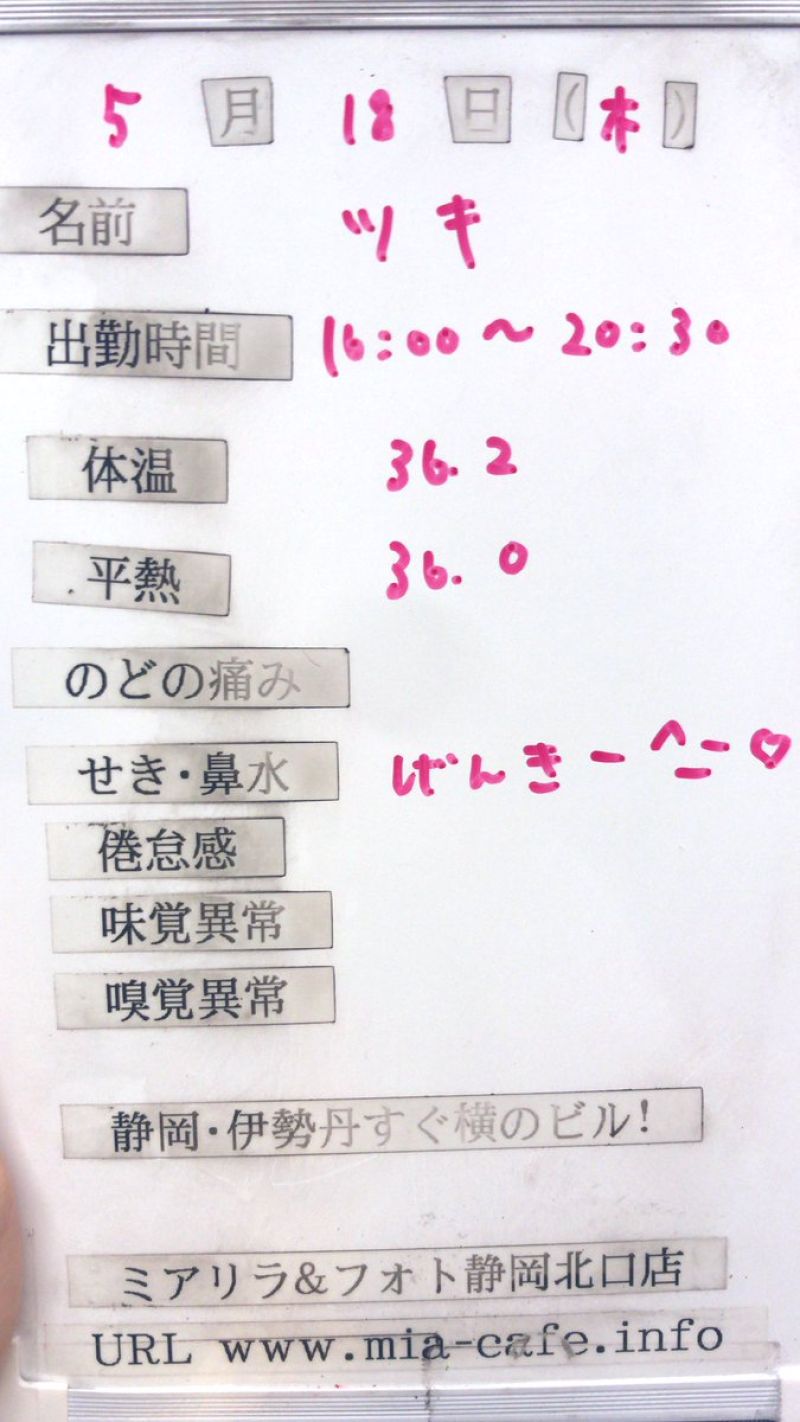 5月18日(木)
名前 ツキ
出勤時間 16:00〜20:30
体温 36.2
平熱 36.0
のどの痛み
せき・鼻水 げんきー^_-♡
倦怠感
味覚異常
嗅覚異常
静岡・伊勢丹すぐ横のビル!
ミアリラ&フォト静岡北口店
URL www.mia-cafe.info